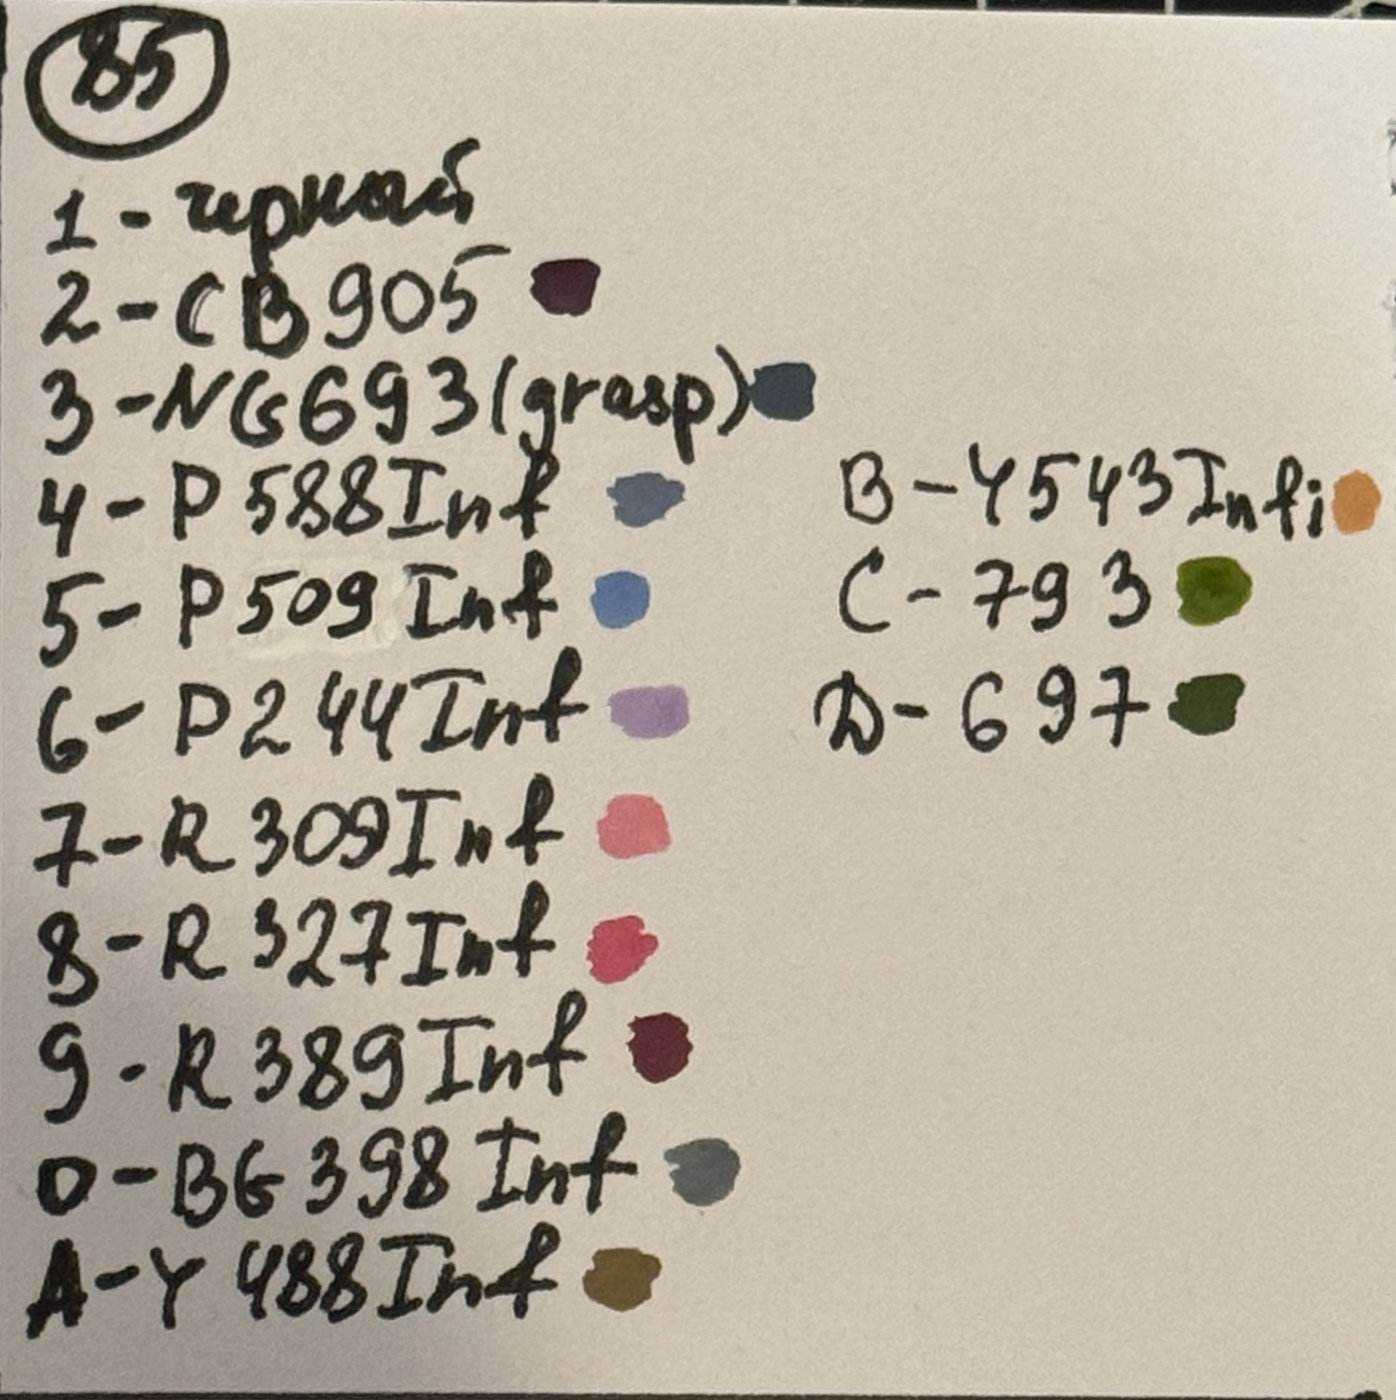 85
1 - черный
2 - CB905
3 - NG693(grasp)
4 - P588Inf
5 - P509 Inf
6 - P244Inf
7 - R309Inf
8 - R327Inf
9 - R389Inf
0 - BG398 Inf
A - Y 488Inf
B - Y543Infi
C - 793
D - 697